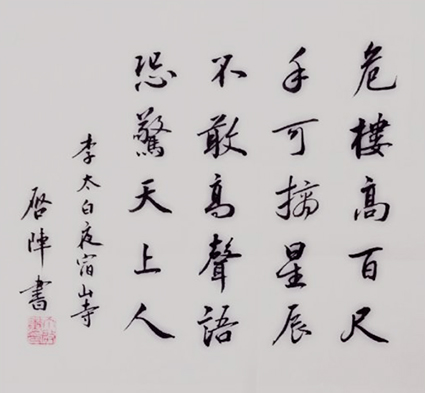 危樓高百尺
手可摘星辰
不敢高聲語
恐驚天上人
李太白夜宿山寺
啓陣書